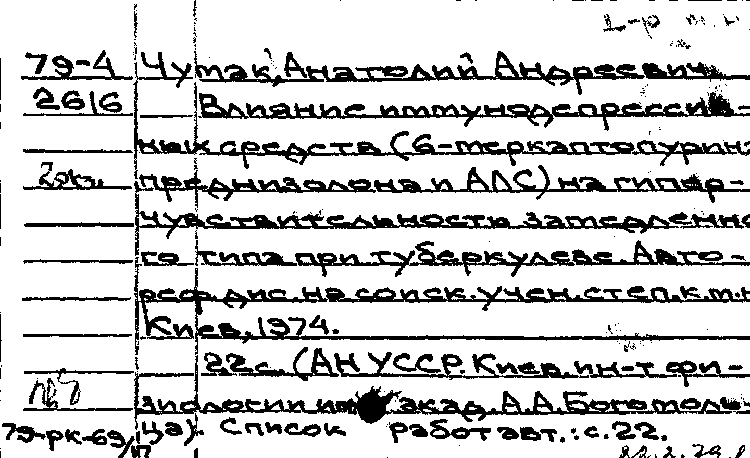 79-4 Чумак, Анатолий Андреевич.
2616 Влияние иммунодепрессив-
ных средств (6-меркаптопурина
2экз. преднизолона и АЛС) на гипер-
чувствительность замедленно
го типа при туберкулезе. Авто-
реф. дис. на соиск. учен. степ. к.м.н
Киев, 1974.
22 с. (АН УССР. Киев. ин-т фи-
зиологии им. акад. А.А. Богомоль-
79-рк-69/ ца). Список работ авт.: с. 22.